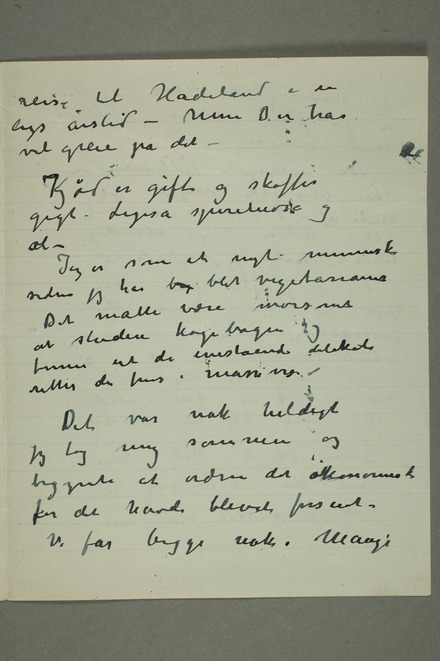 reise til Hadeland i en
lys årstid – Men D er har
vel greie på det –
Kjød er gift og skaffer
gigt. Ligesa spirituose og
øl –
Jeg er som et nyt menneske
siden jeg har blet vegetarianer
Det måtte være morsomt
at studere kogebogen og
finne ut de enestående delikate
retter der fins i massevis –
Det var nok heldigt
jeg tog mig sammen og
begynte at ordne det økonomiske
før det havde blevet forsent –
Vi får begge nok. Mange